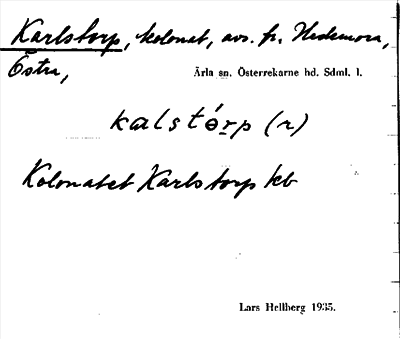 Karlstorp, kolonat, avs. fr. Hedemora,
Östra,
Ärla sn. Österrekarne hd. Sdml. l.
kalstórp (r)
Kolonatet Karlstorp kb
Lars Hellberg 1935.